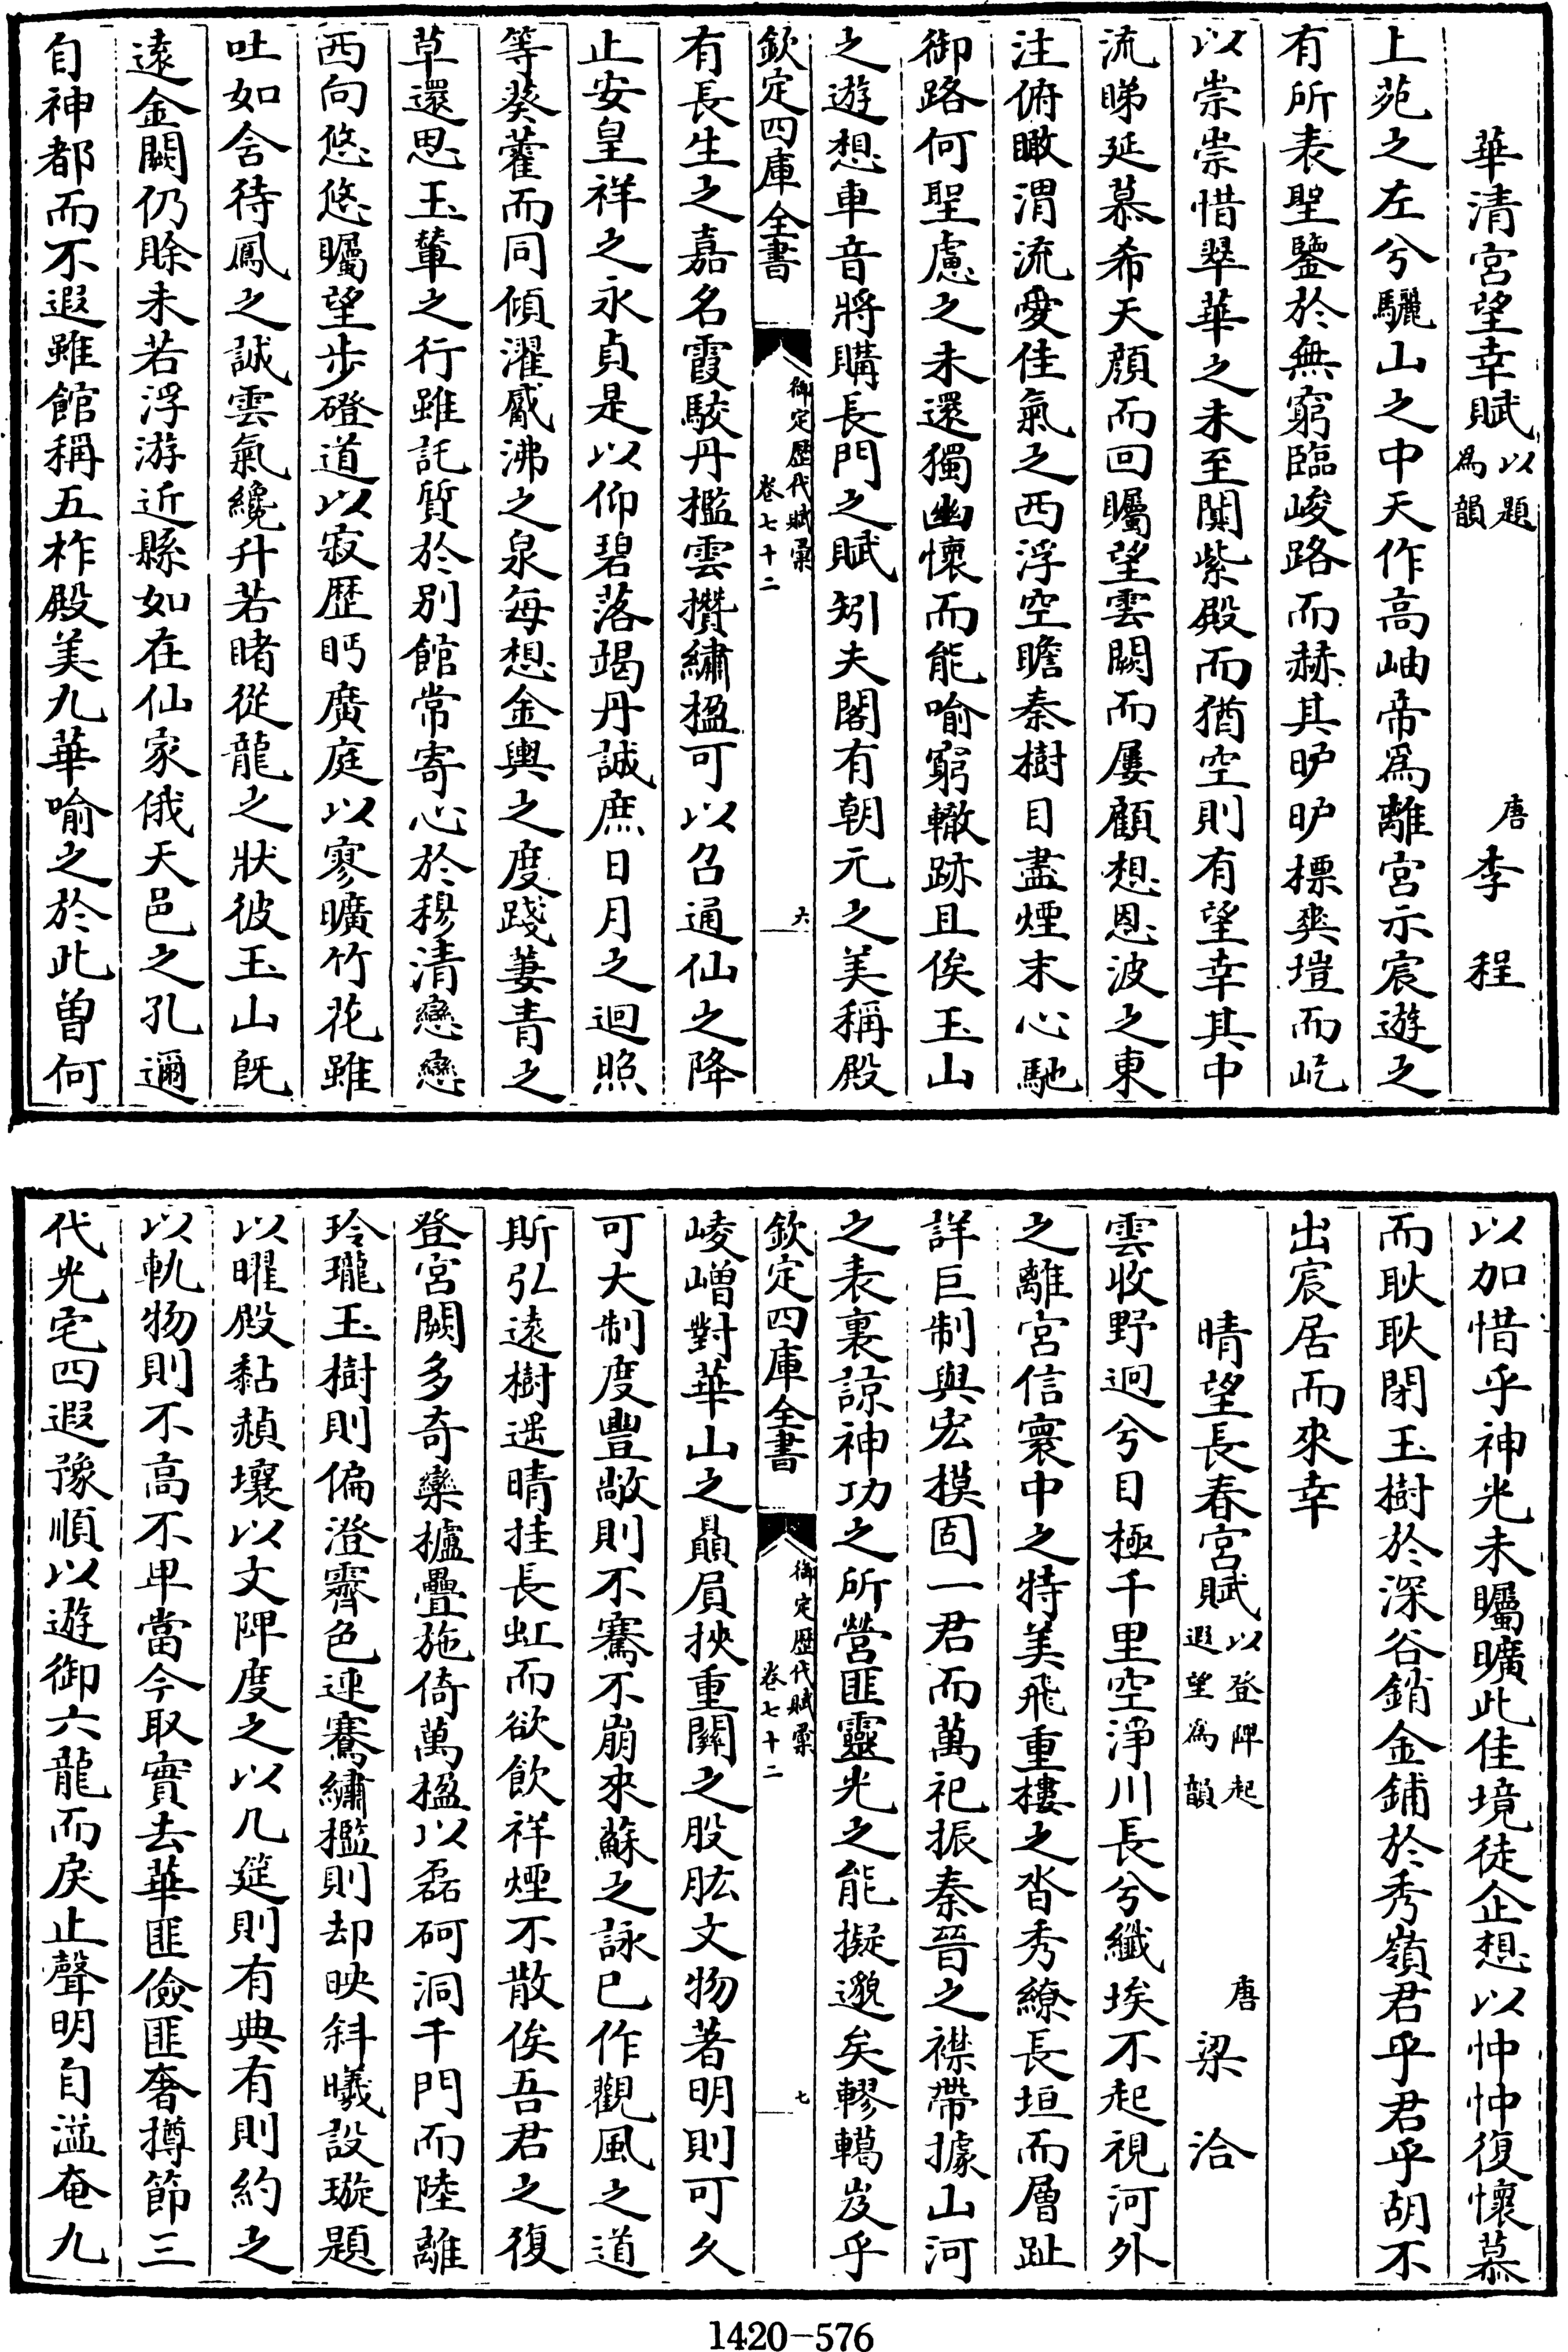 華清宮望幸賦以題為韻　唐李程
上苑之左兮驪山之中天作高岫帝為離宮示宸遊之
有所表聖鑒於無窮臨峻路而赫其昈昈摽爽塏而屹
以崇崇惜翠華之未至闃紫殿而猶空則有望幸其中
流睇延慕希天顔而回矚望雲闕而屢顧想恩波之東
注俯瞰渭流愛佳氣之西浮空瞻秦樹目盡煙末心馳
御路何聖慮之未還獨幽懷而能喻窮轍跡且俟玉山
之遊想車音將購長門之賦矧夫閣有朝元之美稱殿
欽定四庫全書　御定歴代賦彙卷七十二　六
有長生之嘉名霞駮丹檻雲攢繡楹可以召通仙之降
止安皇祥之永貞是以仰碧落竭丹誠庶日月之迴照
等葵藿而同傾濯觱沸之泉每想金輿之度踐萋青之
草還思玉輦之行雖託質於别館常寄心於穆清戀戀
西向悠悠矚望步磴道以寂歴眄廣庭以寥曠竹花雖
吐如含待鳳之誠雲氣纔升若睹從龍之狀彼玉山旣
遠金闕仍賒未若浮游近縣如在仙家俄天邑之孔邇
自神都而不遐雖館稱五柞殿美九華喻之於此曽何
以加惜乎神光未矚曠此佳境徒企想以忡忡復懷慕
而耿耿閉玉樹於深谷銷金鋪於秀嶺君乎君乎胡不
出宸居而來幸
晴望長春宮賦以登陴起遐望為韻　唐梁洽
雲收野迥兮目極千里空淨川長兮纖埃不起視河外
之離宮信寰中之特美飛重樓之沓秀繚長垣而層趾
詳巨制與宏模固一君而萬祀振秦晉之襟帶據山河
之表裏諒神功之所營匪靈光之能擬邈矣轇轕岌乎
欽定四庫全書　御定歴代賦彙卷七十二　七
崚嶒對華山之贔屓挾重關之股肱文物著明則可久
可大制度豐敞則不騫不崩來蘇之詠已作觀風之道
斯弘遠樹遥晴挂長虹而欲飲祥煙不散俟吾君之復
登宮闕多奇欒攎疊施倚萬楹以磊砢洞千門而陸離
玲瓏玉樹則偏澄霽色連騫繡檻則却映斜曦設璇題
以曜殿黏赬壤以文陴度之以几筵則有典有則約之
以軌物則不高不卑當今取實去華匪儉匪奢撙節三
代光宅四遐豫順以遊御六龍而戾止聲明自溢奄九
1420-576